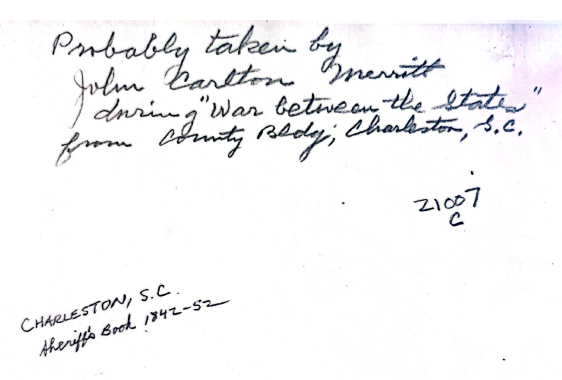 Probably taken by
John Carlton Merritt
during "War between the States"
from County Bldg; Charleston, S.C.
21007
C
CHARLESTON, S.C.
Sheriff's Book 1842-52